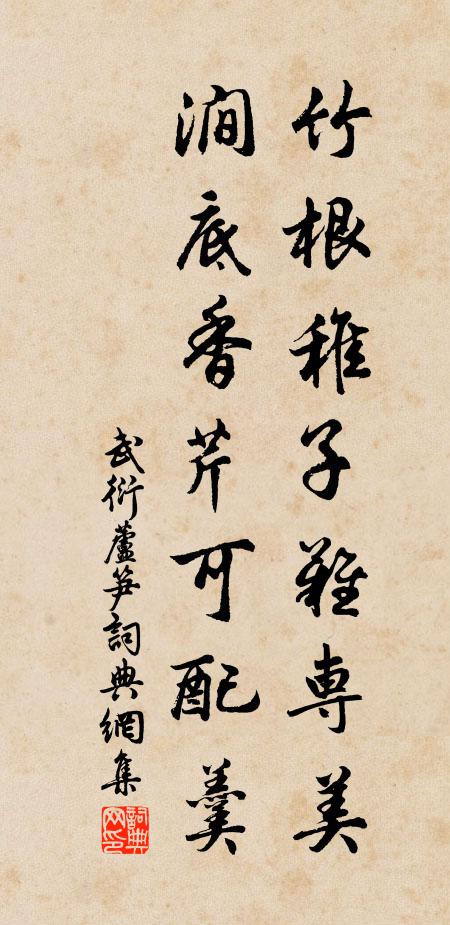 竹根稚子難專美
澗底香芹可配羹
武衍蘆笋詞典網集
詞典网印